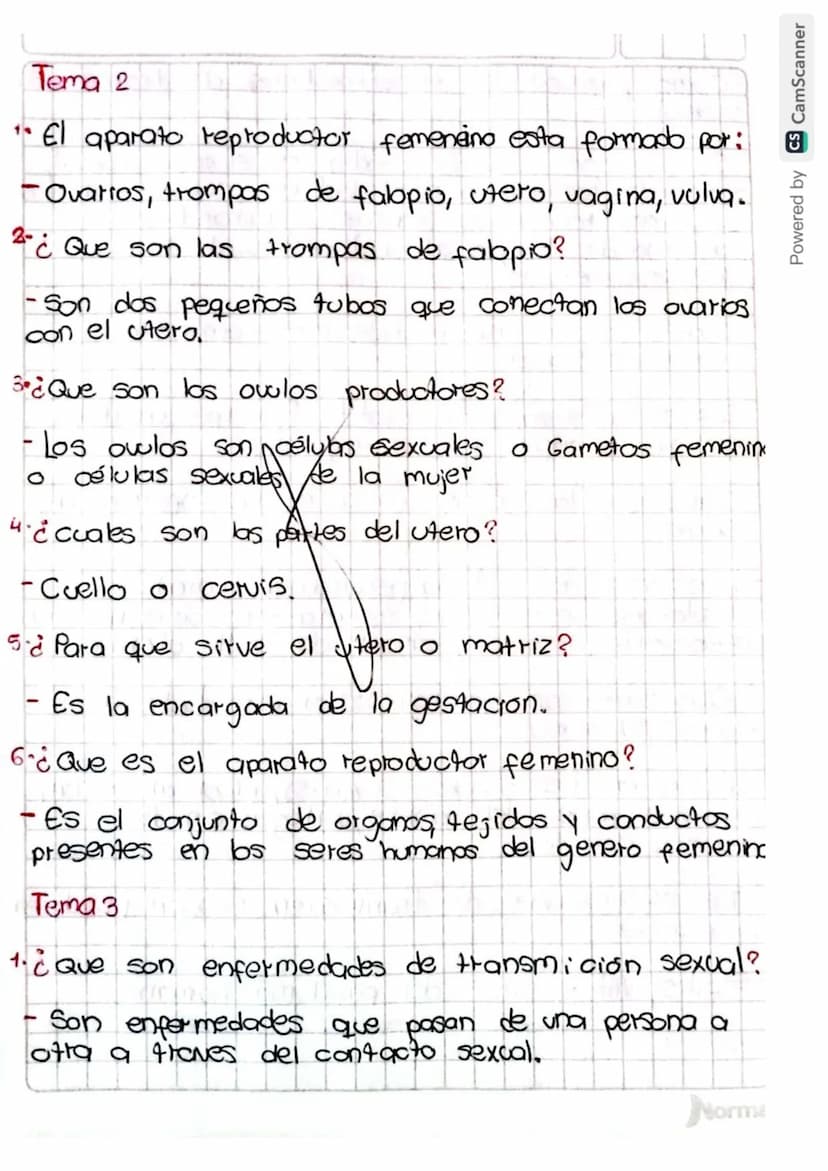 Tema 2
1. El aparato reproductor femenino esta formado por:
- Ovarios, trompas de falopio, utero, vagina, vulva.
2-¿Que son las trompas de falopio?
- Son dos pequeños tubos que conectan los ovarios
con el utero.
3.¿Que son los ovulos productores?
- Los ovulos son células sexuales o Gametos femenin
o células sexuales de la mujer
4.¿cuales son las partes del utero?
- Cuello o cervis.
5.¿Para que sirve el utero o matriz?
- Es la encargada de la gestacion.
6.¿Que es el aparato reproductor femenino?
- Es el conjunto de organos, tejidos y conductos
presentes en los seres humanos del genero femenino
Tema 3
1.¿Que son enfermedades de transmición sexual?
- Son enfermedades que pasan de una persona a
otra a traves del contacto sexual.
Norma
Powered by CS CamScanner